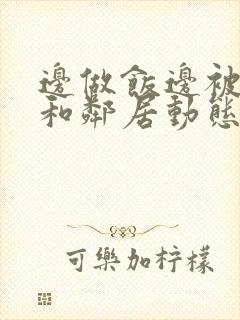 邊做飯邊被
和鄰居動態
可樂加柠檬